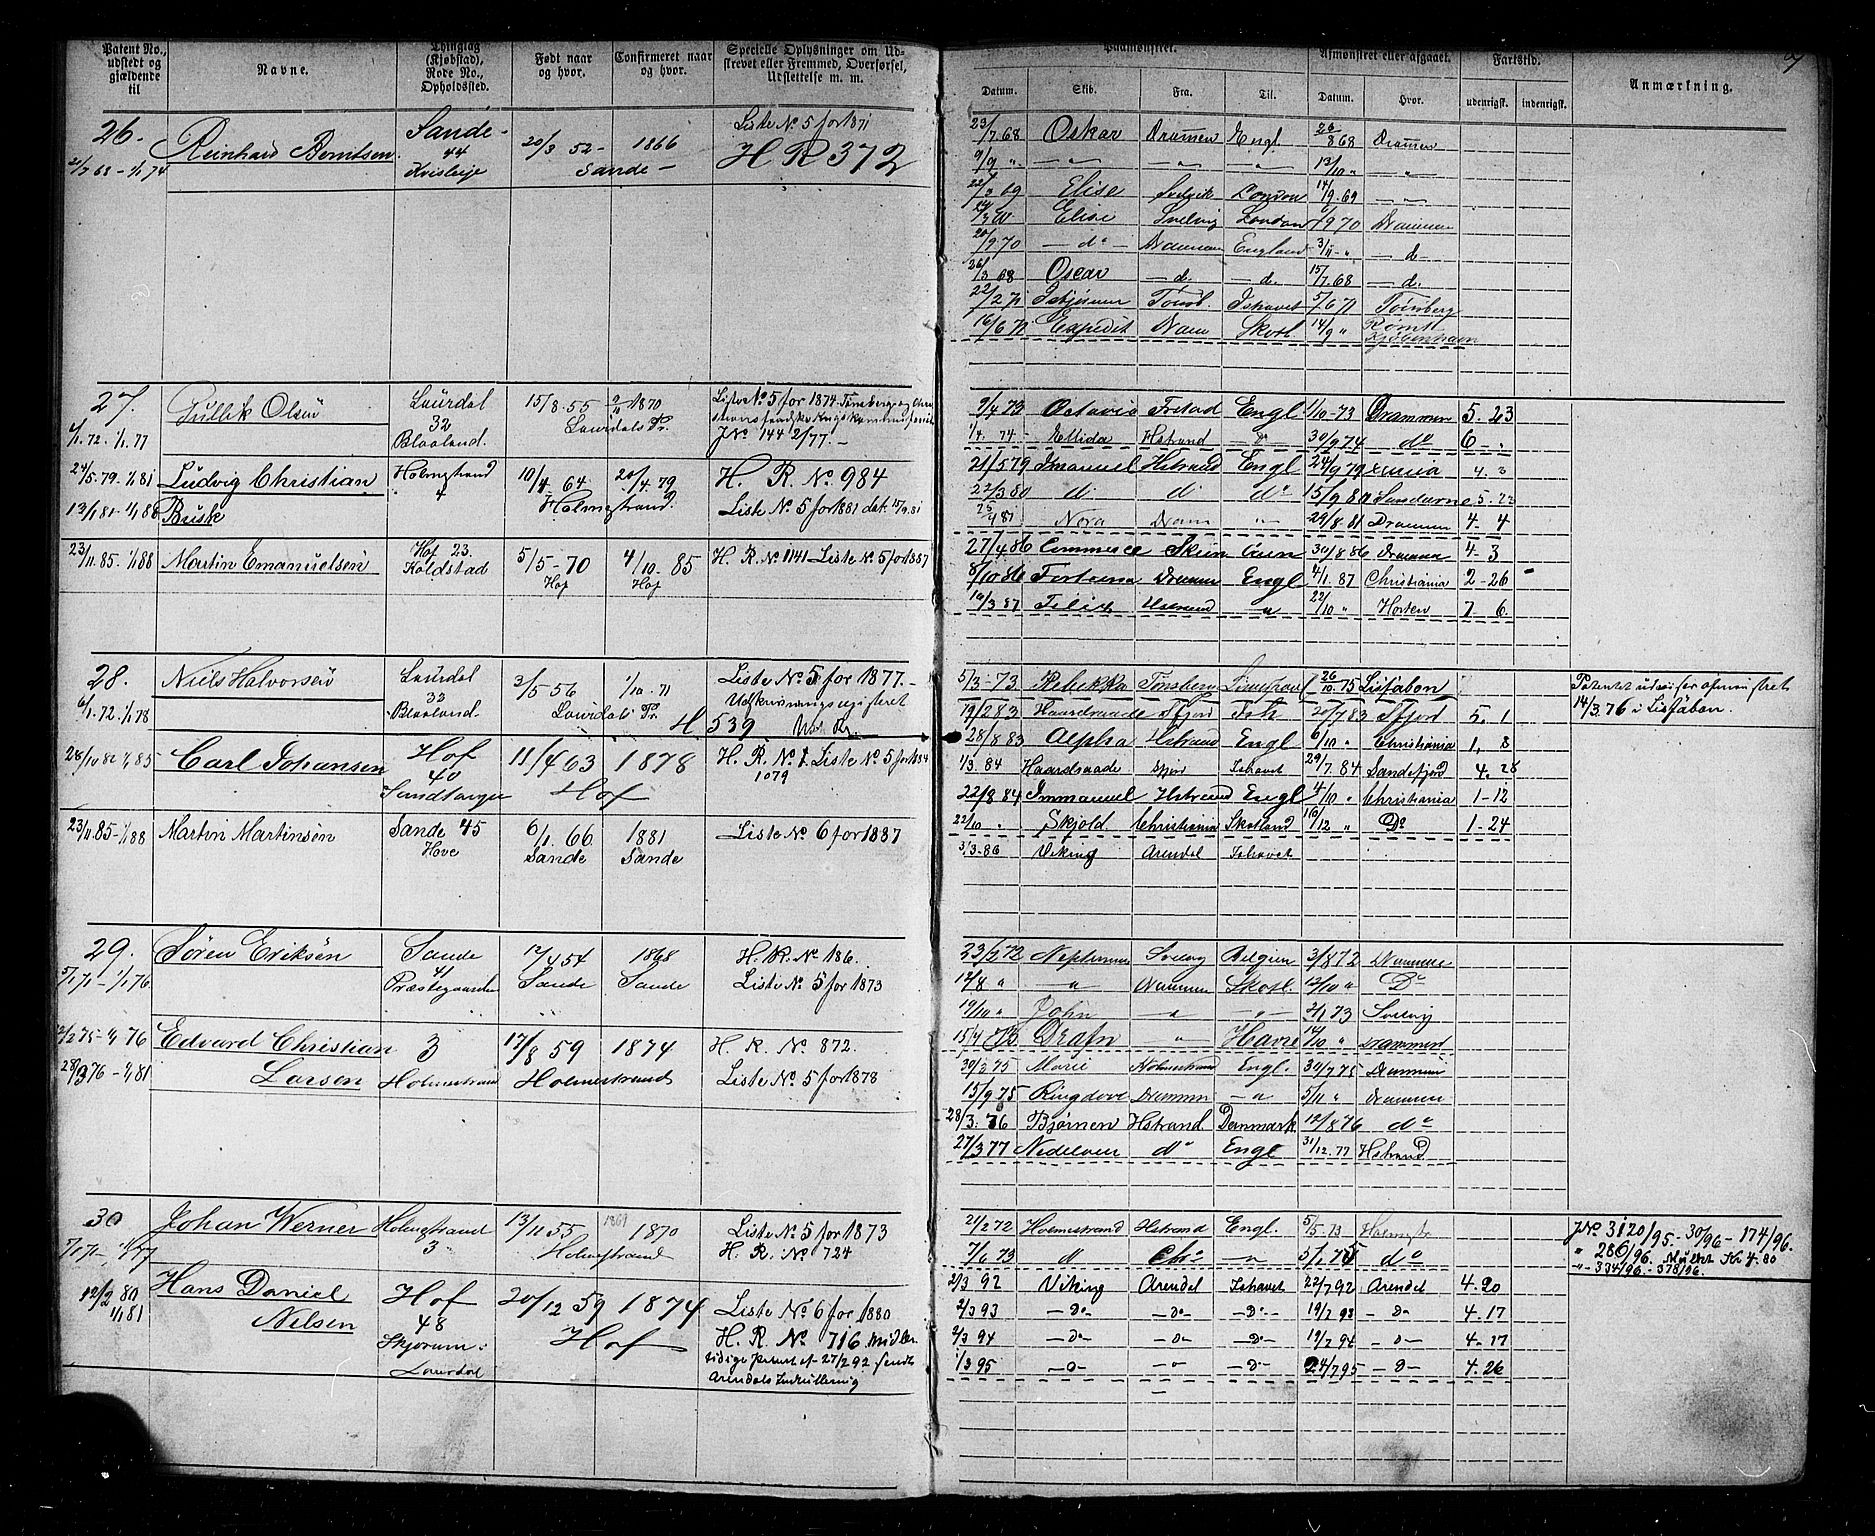 Patent No., udstedt og gjældende til
Navne.
Thinglag (Kjøbstad), Rode No., Opholdssted.
Født naar og hvor.
Confirmeret naar og hvor.
Specielle Oplysninger om Udstrevet eller Fremmed, Overførsel, Udslettelse m. m.
26.
21/7 68 - 1/1 74
Reinhard Berntsen
Sande
44
20/3 52 -
1866
Sande -
Liste No 5 for 1871
H R 372
27.
1/1 72 - 1/1 77
Gullik Olsen
Laurdal
32
Blaaland.
15/8 - 55
1870
Laurdals Pr.
Liste No 5 for 1874
J No 144 2/77. -
24/5 - 79 - 1/1 81
13/1 81 - 1/1 86
Ludvig Christian
Busk
Holmestrand
4
10/4 64
20/4 79
Holmestrand
H. R. No 984
Liste No 5 for 1881
23/11 85 - 1/1 88
Martin Emanuelsen
Hof 23.
Koldstad
5/5 - 70
Hof
4/10 - 85
Hof
H. R. No 1141 - Liste No 5 for 1887
28.
6/1 72 - 1/1 78
Niels Halvorsen
Laurdal
33
Blaaland.
3/5 56
1/10 - 71
Laurdals Pr
Liste No 5 for 1877. -
H. 539
28/10 82 - 1/1 85
Carl Johansen
Hof
40
11/4 63
1878
Hof
H. R. No
1079
Liste No 5 for 1884
23/11 85 - 1/1 88
Martin Martinsen
Sande 45
Hove
6/1 66
Sande
1881
Sande
Liste No 6 for 1887
29.
5/1 71 - 1/1 76
Søren Eriksen
Sande
41
Præstegaarden
12/4 54
Sande
1868
Sande
H. R. No 186.
Liste No 5 for 1873
2/2 75 - 1/1 76
28/3 76 - 1/1 81
Edvard Christian
Larsen
3
Holmestrand
17/8 59
1874
Holmestrand
H. R. No 872.
Liste No 5 for 1878
30
7/1 71 - 1/1 77
Johan Werner
Holmestrand
3
13/11 55
1870
Holmestrand
Liste No 5 for 1873
H. R. No 724
12/2 80
1/1 81
Hans Daniel
Nilsen
Hof
48
Laurdal
20/12 59
1874
Hof
Liste No 6 for 1880
H. R. No 716 midler
tidige Patent af 27/2 92 sendt
Arendals Indrullering
Paamønstret.
Afmønstret eller afgaaet.
Fartstid.
Anmærkning.
Datum. Skib. Fra. Til. Datum. Hvor. udenrigsk. indenrigsk.
23/7 68 Oskar Dramen Engl. 868 Dramen
9/9 " - " - " " 13/10 " - " -
69 Elise Svelvik London 14/9 69 - " -
Elise Svelvig London 970 Drammen
20/9 70 - do - Drammen England 3/11 - " - d
26/3 68 Oscar - d. - d. 15/7 68 - d.
22/2 71 Tønsb. Ishavet 5/6 71 Tønsberg
16/6 71 Expedit Dram Skotl 14/9 " Rømt
Kjøbenhavn
9/4 73 Octavia Engl 1/10 - 73 Drammen 5. 23
1/4. 74 - Ellida Hstrand 30/9 74 do 6 - "
21/5 79 Imanuel Hstrand Engl 24/9 79 4. 3
22/3 80 d d do 15/9 80 5. 23
81 Nora Dram " 29/8 81 Drammen 4. 4
27/4 86 Commerce Skien 30/8 86 Drammen 4 - 3
8/10 86 Fortuna Drammen Engl 4/1. 87 Christiania 2 - 26
10/3 87 Felix Hstrand " 22/10 " Horten 7 - 6.
5/3 - 73 Rebekka Tønsberg 26/10 - 75 Lissabon
14/3 76 i Lissabon.
19/2 83 Haardraade Sfjord Ish 20/7 83 Sfjord 5. 1
28/8 83 Alpha Hstrand Engl 6/10 " Christiania 1. 8
1/3. 84 Haardraade Sfjor Ishavet 29/7. 84 Sandefjord 4. 28
22/8 84 Immanuel Hstrand Engl 4/10 " Christiania 1 - 12
22/10 " Skjold Christiania Skotland 16/12 " Do 1 - 24
3/3 - 86 Viking Arendal Ishavet
23/3 72 Neptunus Svelvig Belgien 3/8 72 Drammen
14/8 " - " Drammen Skotl. 12/10 " Do
19/10 " John - " - " 2/1 73 Svelvig
15/4 73 Drafn - " - Havre 14/10 " Drammen
30/3 75 Marie Holmestrand Engl. 30/7 75 Drammen
15/9 75 Ringdove Drammen - " 5/11 " Drammen
28/3. 76 Bjørnen Hstrand Danmark 12/8 76 do
27/3 77 do Engl 31/12. 77 Hstrand
21/2 72 Holmestrand Hstrand Engl. 5/5. 73
7/6 73 d Cha - " 5/1 75 do
2/3 92 Viking Arendal Ishavet 22/7 92 Arendal 4. 20
2/3 93 - Do - - Do - - Do - 19/7 93 - Do - 4. 17
2/3 94 - Do - - Do - - Do - 19/7 94 - Do - 4. 17
1/3 95 - Do - - Do - 24/7 95 - Do - 4. 26
J No 3120/95 - 30/96 - 174/96.
" 286/96. Mulkt Kr 4.80
" 334/96 - 378/96.